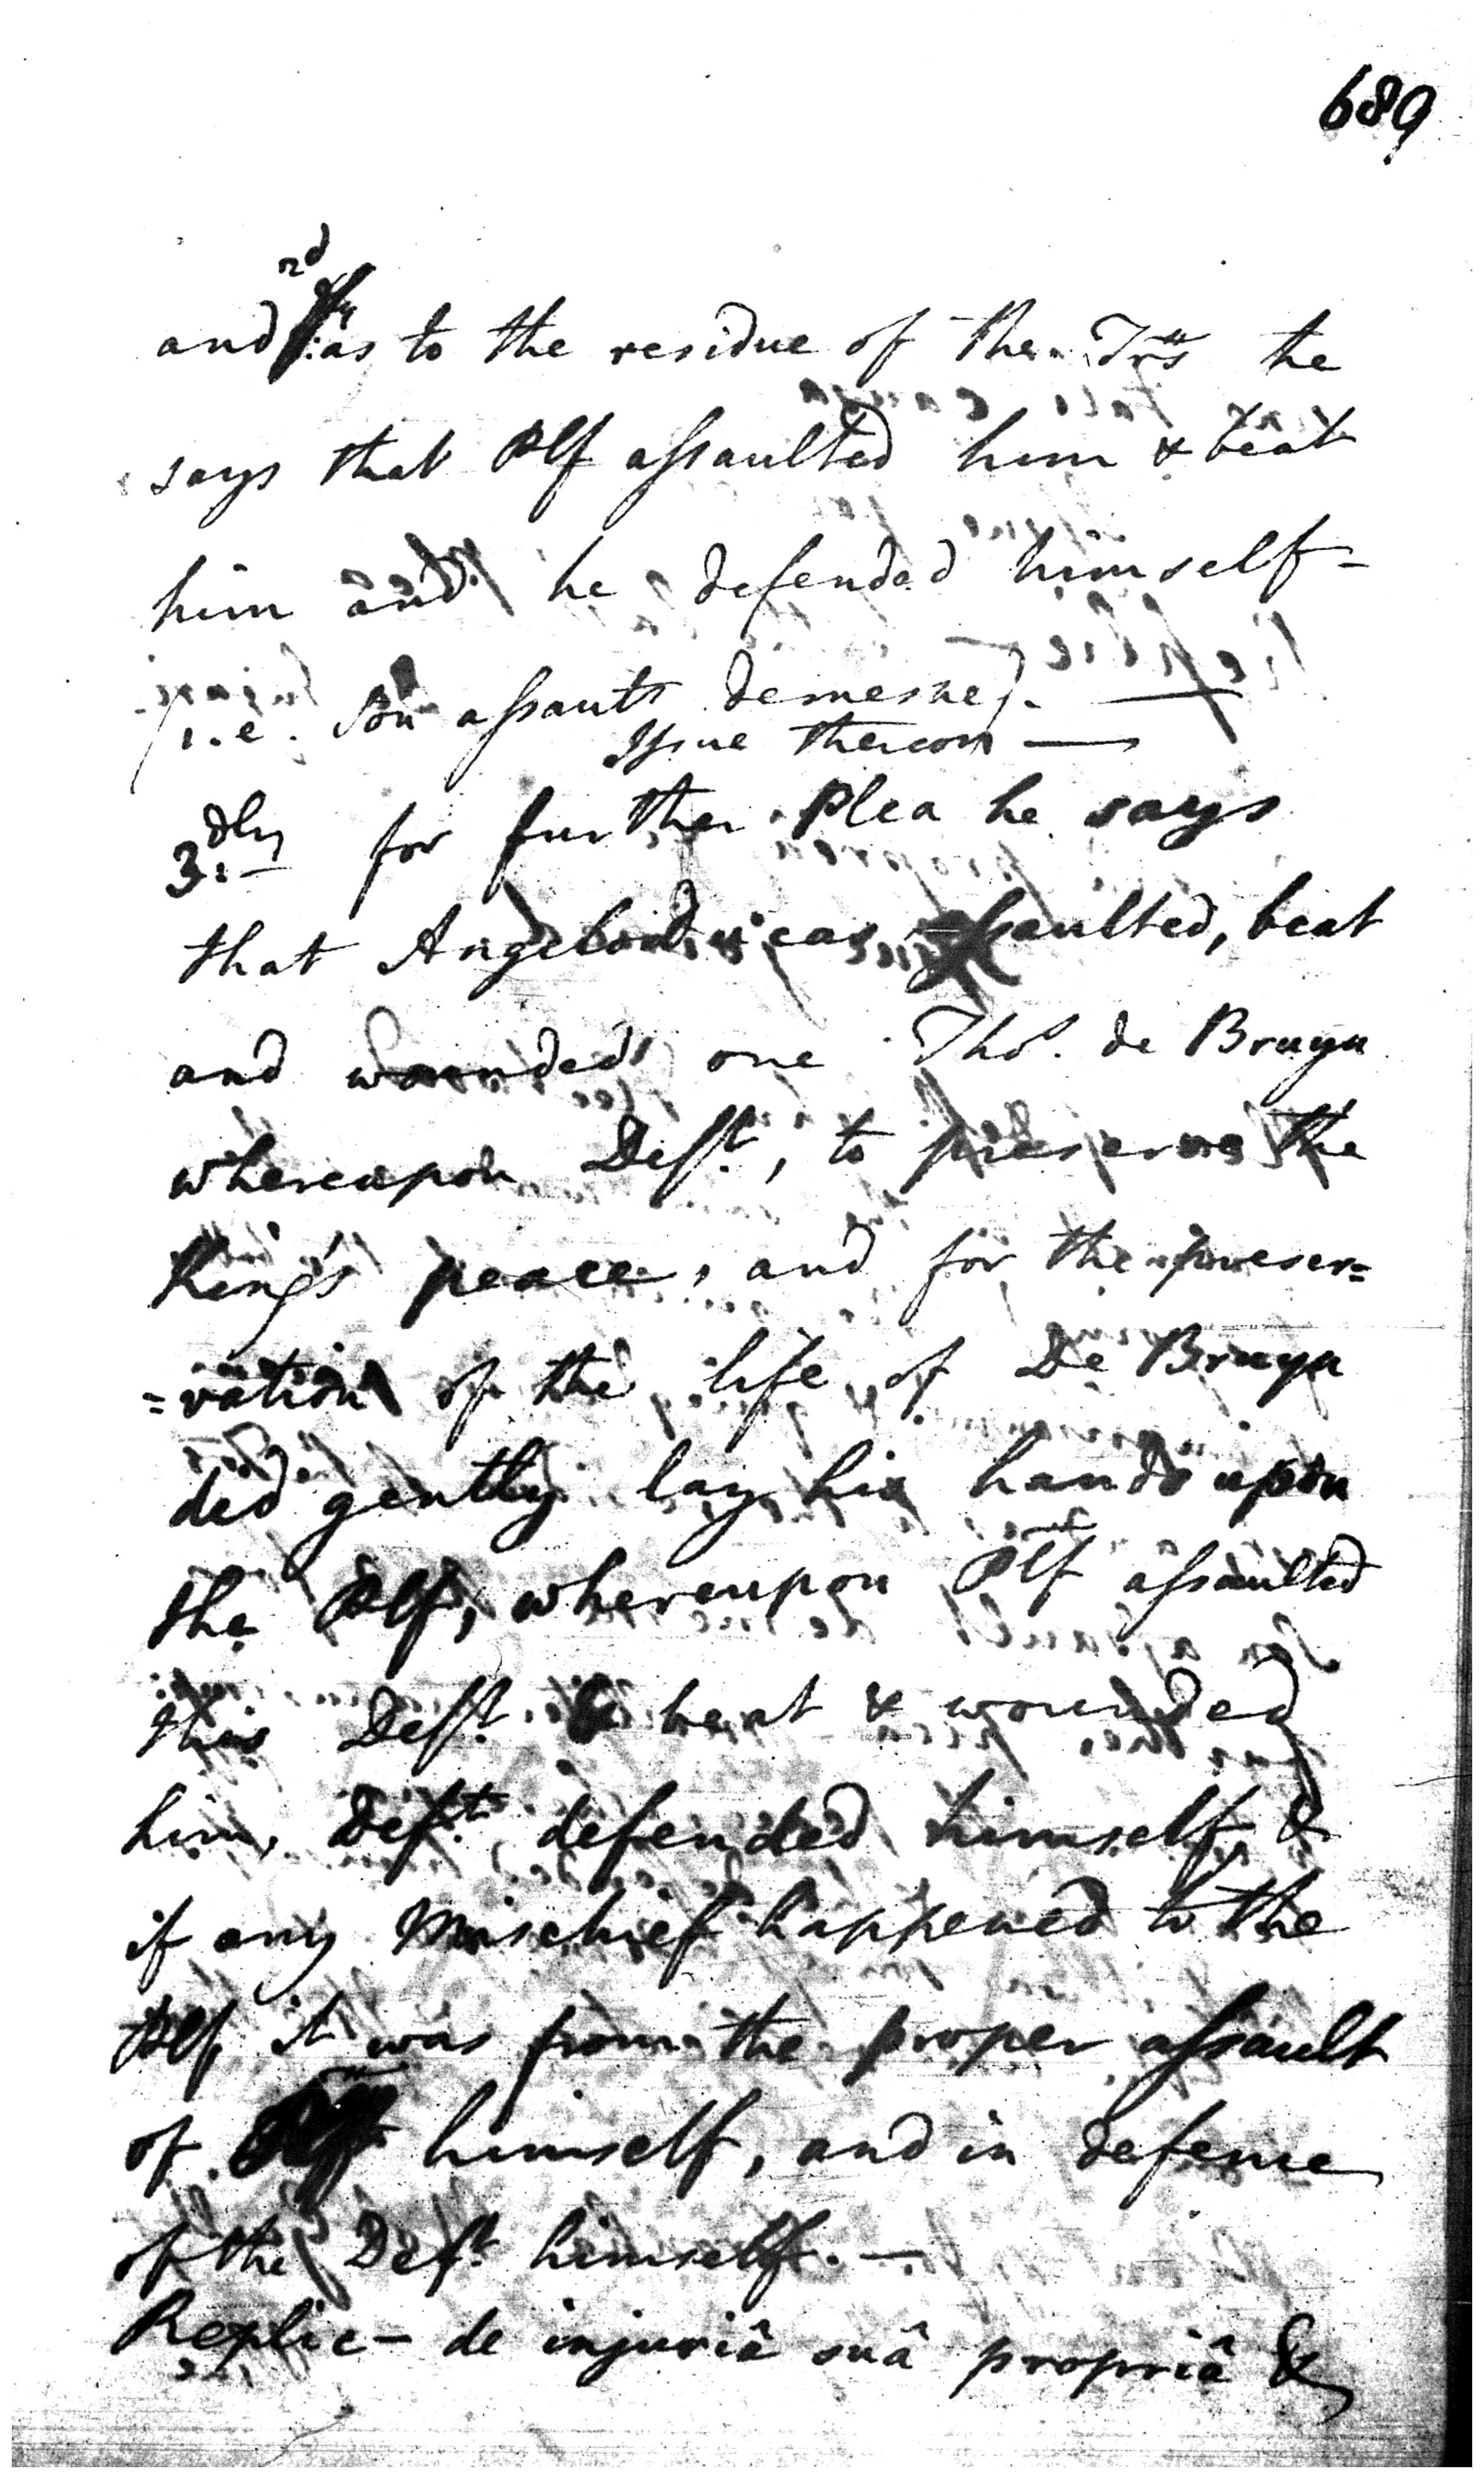 689
and 2dly as to the residue of the Trs he
says that Plf assaulted him & beat
him and he defended himself -
(i.e. son assault demesne). —
Issue thereon —
3dly for further Plea he says
that assaulted, beat
and wounded one Thos. de Bruyn
whereupon Deft, to preserve the
King's peace, and for the preser=
=vation of the life of De Bruyn
did gently lay his hands upon
the Plf, whereupon Plf assaulted
this Deft. & beat & wounded
him, Deft. defended himself, &
if any Mischief happened to the
Plf it was from the proper assault
of himself, and in defence
of the Deft himself. —
Replic - de injuriâ suâ propriâ &